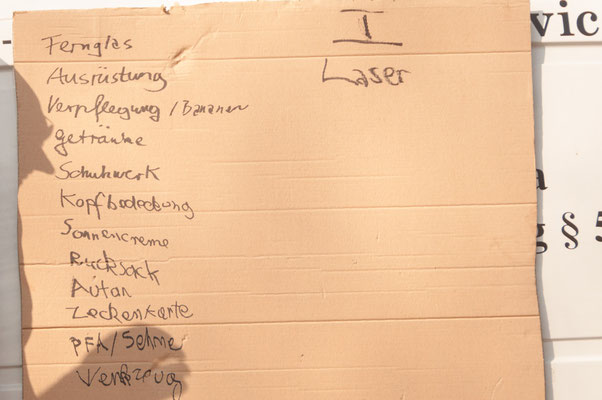 Fernglas
Ausrüstung
Verpflegung / Bananen
Getränke
Schuhwerk
Kopfbedeckung
Sonnencreme
Rucksack
Autan
Zeckenkarte
Pfh/Sehne
Werkzeug
I
Laser
vic
a
g § 5